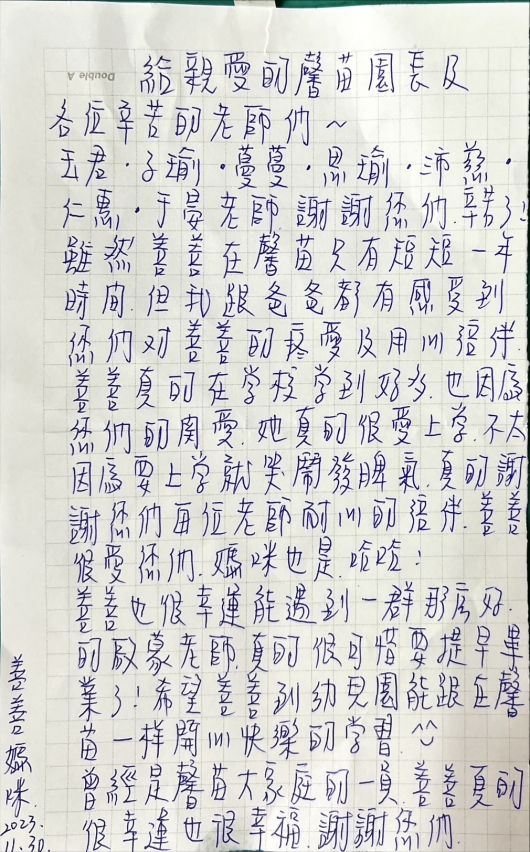 Double A
給親愛的馨苗園長及
各位辛苦的老師們~
玉君·子瑜·蔓蔓·恩瑜·沛慈·
仁惠·于晏老師.謝謝您們.辛苦了!
雖然善善在馨苗只有短短一年
時間.但我跟爸爸都有感受到
您們对善善的疼愛及用心陪伴.
善善真的在学校学到好多.也因為
您們的関愛.她真的很愛上学.不太
因為要上学就哭鬧發脾氣.真的謝
謝您們每位老師耐心的陪伴.善善
很愛您們.媽咪也是.哈哈!
善善也很幸運能遇到一群那広好.
的啟蒙老師.真的很可惜要提早畢
業了!希望善善到幼兒園能跟在馨
苗一樣開心快樂的学習.^^
曾經是馨苗大家庭的一員.善善真的
很幸運也很幸福.謝謝您們.
善善媽咪.
2023.
11.30.